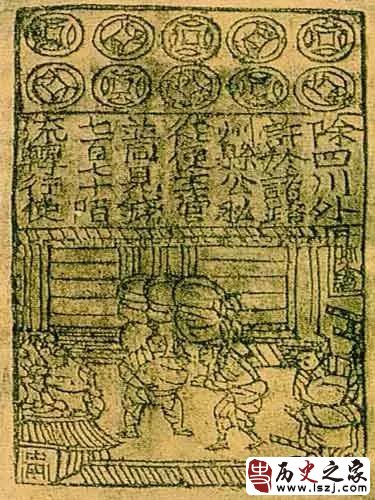 除四川外
許於諸路
州縣公私
從便主管
並同見錢
七百七十陌
流轉行使
历史之家
www.lszj.com